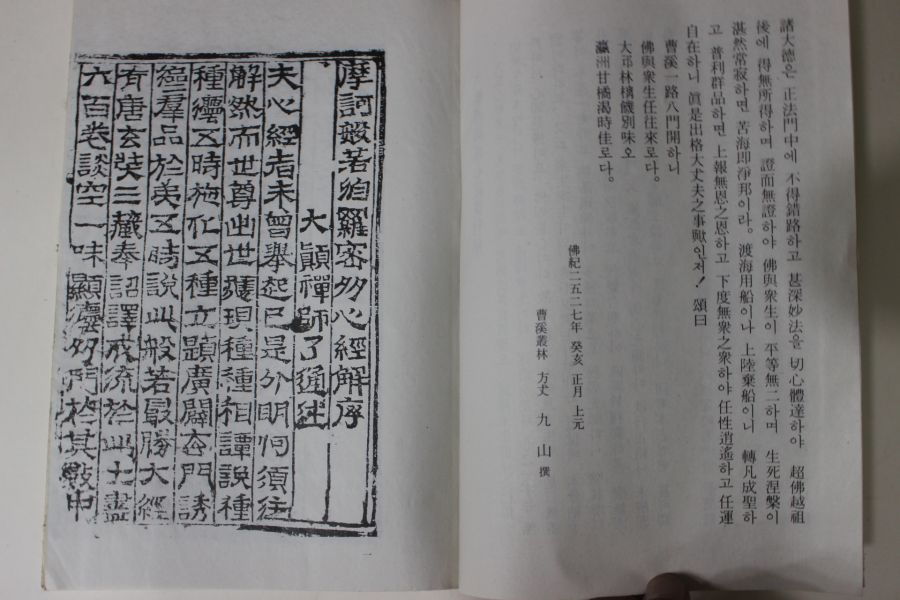 諸大德은 正法門中에 不得錯路하고 甚深妙法을 切心體達하야 超佛越祖
後에 得無所得하며 證而無證하야 佛與衆生이 平等無二하며 生死涅槃이
湛然常寂하면 苦海即淨邦이라。渡海用船이나 上陸棄船이니 轉凡成聖하
고 普利群品하면 上報無恩之恩하고 下度無衆之衆하야 任性逍遙하고 任運
自在하니 眞是出格大丈夫之事歟인저! 頌曰
曹溪一路八門開하니
佛與衆生任往來로다。
大邱林檎饑別味오
瀛洲甘橘渴時佳로다。
佛紀二五二七年 癸亥 正月 上元
曹溪叢林 方丈 九山 撰
摩訶般若波羅密多心經解序
大顚禪師了通述
夫心經者未曾擧起已是分明何須注
解然而世尊出世彊現種種相譚說種
種纓五時施化五種立題廣闢玄門誘
群品於第五時說此般若最勝大經
有唐玄奘三藏奉詔譯成流於此土盡
六百卷談空一味顯多門於其數中